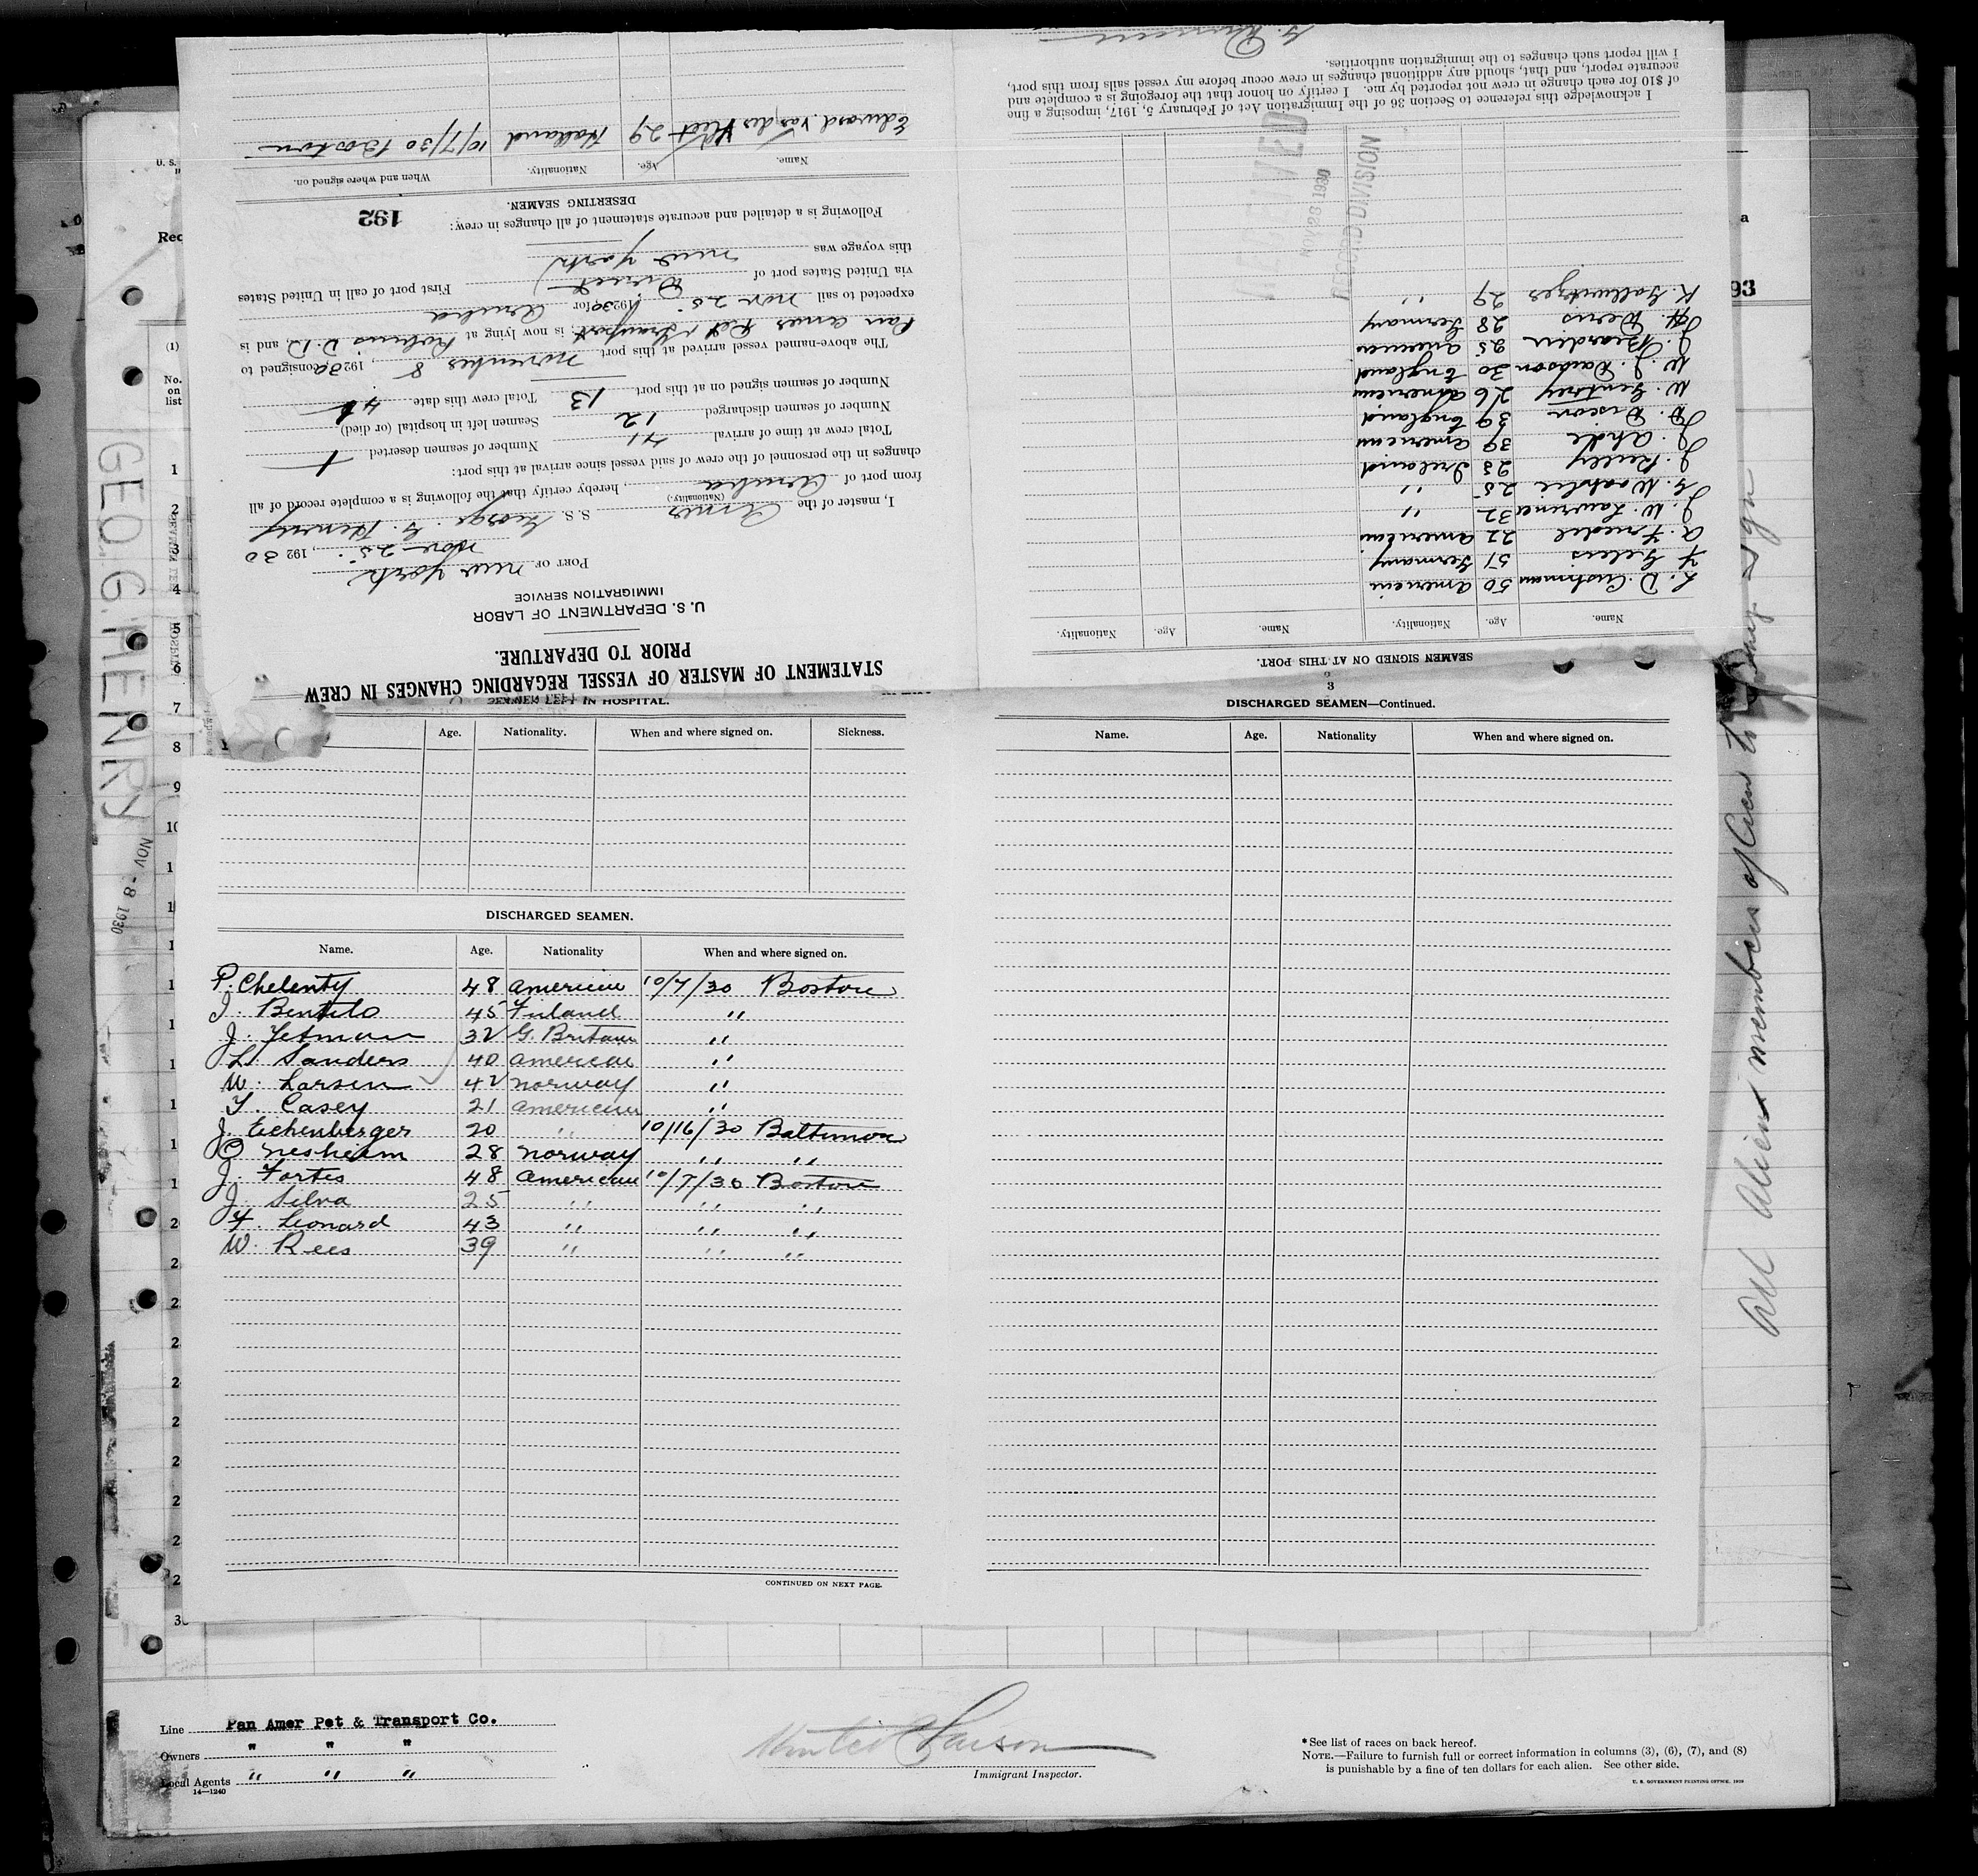 STATEMENT OF MASTER OF VESSEL REGARDING CHANGES IN CREW
PRIOR TO DEPARTURE.
U. S. DEPARTMENT OF LABOR
IMMIGRATION SERVICE
PORT OF New York
Nov 25, 192 30
I, master of the Amer S. S. George G. Henry
(Nationality.)
from port of Aruba, hereby certify that the following is a complete record of all
changes in the personnel of the crew of said vessel since arrival at this port:
Total crew at time of arrival 41 Number of seamen deserted 1
Number of seamen discharged 12 Seamen left in hospital (or died)
Number of seamen signed on at this port 13 Total crew this date
The above-named vessel arrived at this port November 8, 192 consigned to
Pan Amer Pet & Transport, is now lying at Robins D.D., and is
expected to sail Nov 25, 192 30 for Aruba
via United States port of Direct First port of call in United States
this voyage was New York
Following is a detailed and accurate statement of all changes in crew:
192
DESERTING SEAMEN.
Name. Age. Nationality. When and where signed on.
Edward van der Vliet 29 Holland 10/7/30 Boston
SEAMEN SIGNED ON AT THIS PORT.
Name. Age. Nationality. Name. Age. Nationality.
L. D. Cushman 50 American
F. Gelers 51 Germany
A. Friedel 22 American
J. W. Lawrence 32 "
25 "
J. Reilly 28 Ireland
J. 39 American
D. Dixon 39 England
W. Gentrey 26 American
W. J. Dawson 30 England
J. Beardin 25 American
H. Deris 28 Germany
K. 29 "
NOV 28 1930
RECORD DIVISION
I acknowledge this reference to Section 36 of the Immigration Act of February 5, 1917, imposing a fine
of $10 for each change in crew not reported by me. I certify on honor that the foregoing is a complete and
accurate report, and that, should any additional changes in crew occur before my vessel sails from this port,
I will report such changes to the immigration authorities.
SEAMEN LEFT IN HOSPITAL.
Age. Nationality. When and where signed on. Sickness.
DISCHARGED SEAMEN.
Name. Age. Nationality When and where signed on.
P. Chelenty 48 American 10/7/30 Boston
J. Bentelo 45 Finland "
J. Yetman 32 G. Britain "
L. Sanders 40 American "
W. Larsen 42 Norway "
T. Casey 21 American "
J. Eichenberger 20 " 10/16/30 Baltimore
O Nesheim 28 Norway " "
J. Fortes 48 American 10/7/30 Boston
J. Silva 25 " " "
F. Leonard 43 " " "
W. Rees 39 " " "
CONTINUED ON NEXT PAGE.
3
DISCHARGED SEAMEN—Continued.
Name. Age. Nationality When and where signed on.
GEO. G. HENRY
NOV - 8 1930
U. S.
Rec
(1)
No.
on
list
1
2
3
4
5
6
7
8
9
93
All Alien members of Crew to
Line Pan Amer Pet & Transport Co.
Owners " " "
Local Agents " " "
14—1240
Immigrant Inspector.
* See list of races on back hereof.
NOTE.—Failure to furnish full or correct information in columns (3), (6), (7), and (8)
is punishable by a fine of ten dollars for each alien. See other side.
U. S. GOVERNMENT PRINTING OFFICE, 1929